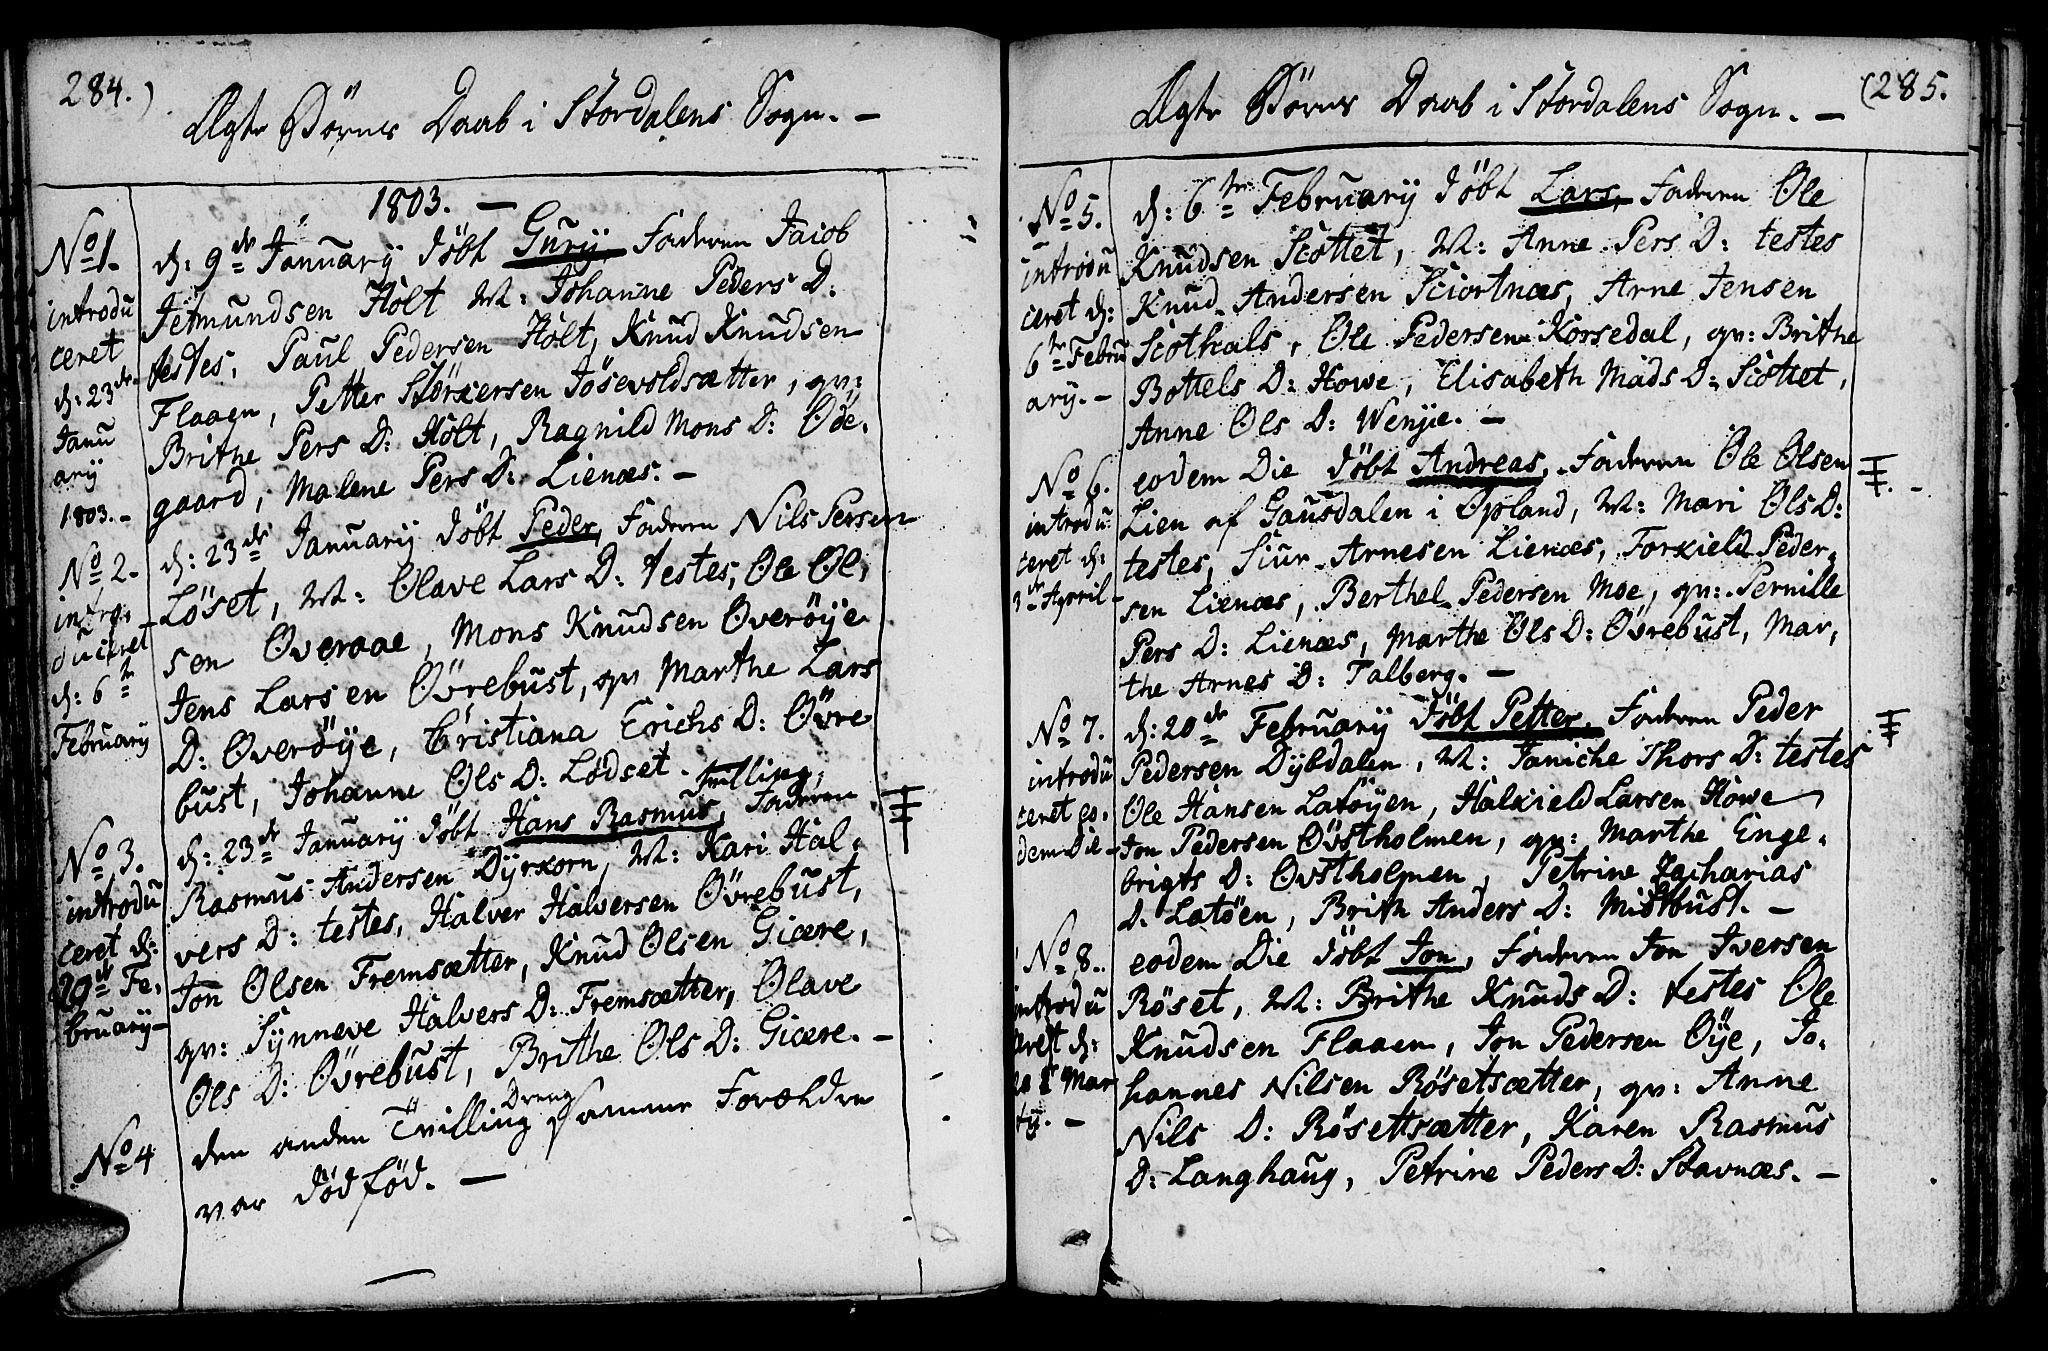 284.)
Ægte Børns Daab i Stordalens Sogn. —
1803. —
No 1.
introdu
ceret
d: 23de
Janu
arij
1803. -
d: 9de Januarij döbt Gurij, Faderen Jacob
Jetmundsen Hölt M: Johanne Peders D:
testes, Paul Pedersen Hölt, Knud Knudsen
Flaaen, Petter Störkersen Jösevoldsætter, qv:
Brithe Pers D: Hölt, Ragnild Mons D: Öde.
gaard, Malene Pers D: Lienæs. -
No 2.
intro,
duceret
d: 6te
Februarij
d: 23de Januarij döbt Peder, Faderen Nils Persen
Löset, M: Olave Lars D: testes, Ole Ol,
sen Overaae, Mons Knudsen Overöÿe
Jens Larsen Övrebust, qv Marthe Lars
D: Overöÿe, Cristiana Erichs D: Övre
bust, Johanne Ols D: Lödset.
No 3.
introdu
ceret d:
20de Fe.
bruarij-
Tvilling,
d: 23de Januarij döbt Hans Rasmus, Faderen
Rasmus Andersen Dÿrkorn, M: Kari Hal,
vers D: testes, Halver Halversen Övrebust,
Jon Olsen Fremsætter, Knud Olsen Giære,
qv: Sÿnneve Halvers D: Fremsætter, Olave
Ols D: Övrebust, Brithe Ols D: Giære. -
No 4
Dreng
den anden Tvilling samme Forældre
var dödföd. —
(285.
Ægte Børns Daab i Stordalens Sogn. —
No 5.
introdu
ceret d:
6te Febru
arij. -
d: 6te Februarij döbt Lars, Faderen Ole
Knudsen Scottet, M: Anne Pers D: testes
Knud Andersen Sciortnæs, Arne Jensen
Scothals, Ole Pedersen Korsedal, qv: Brithe
Bottels D: Howe, Elisabeth Mads D: Scottet,
Anne Ols D: Wenjie. -
No 6.
introdu
ceret d:
April
eodem Die döbt Andreas, Faderen Ole Olsen
Lien af Gausdalen i Opland, M: Mari Ols D:
testes, Siur Arnesen Lienæs, Torkield Peder,
sen Lienæs, Berthel Pedersen Moe, qv: Pernille
Pers D: Lienæs, Marthe Ols D: Övrebust, Mar,
the Arnes D: Talberg. —
No 7.
introdu
ceret eo.
dem Die -
d: 20de Februarij döbt Petter, Faderen Peder
Pedersen Dÿbdalen, M: Janiche Thors D: testes
Ole Hansen Latöÿen, Halkield Larsen Howe
Jon Pedersen Övstholmen, qv: Marthe Enge,
brigts D: Övstholmen, Petrine Zacharias
D. Latöen, Brith Anders D: Mistbust. -
No 8.
introdu
ceret d:
Mar
tij. -
eodem Die döbt Jon, Faderen Jon Iversen
Röset, M: Brithe Knuds D: testes Ole
Knudsen Flaaen, Jon Pedersen Öÿe, Jo.
hannes Nilsen Rösetsætter, qv: Anne
Nils D: Rösettsætter, Karen Rasmus
D: Langhaug, Petrine Peders D: Stavnæs. -